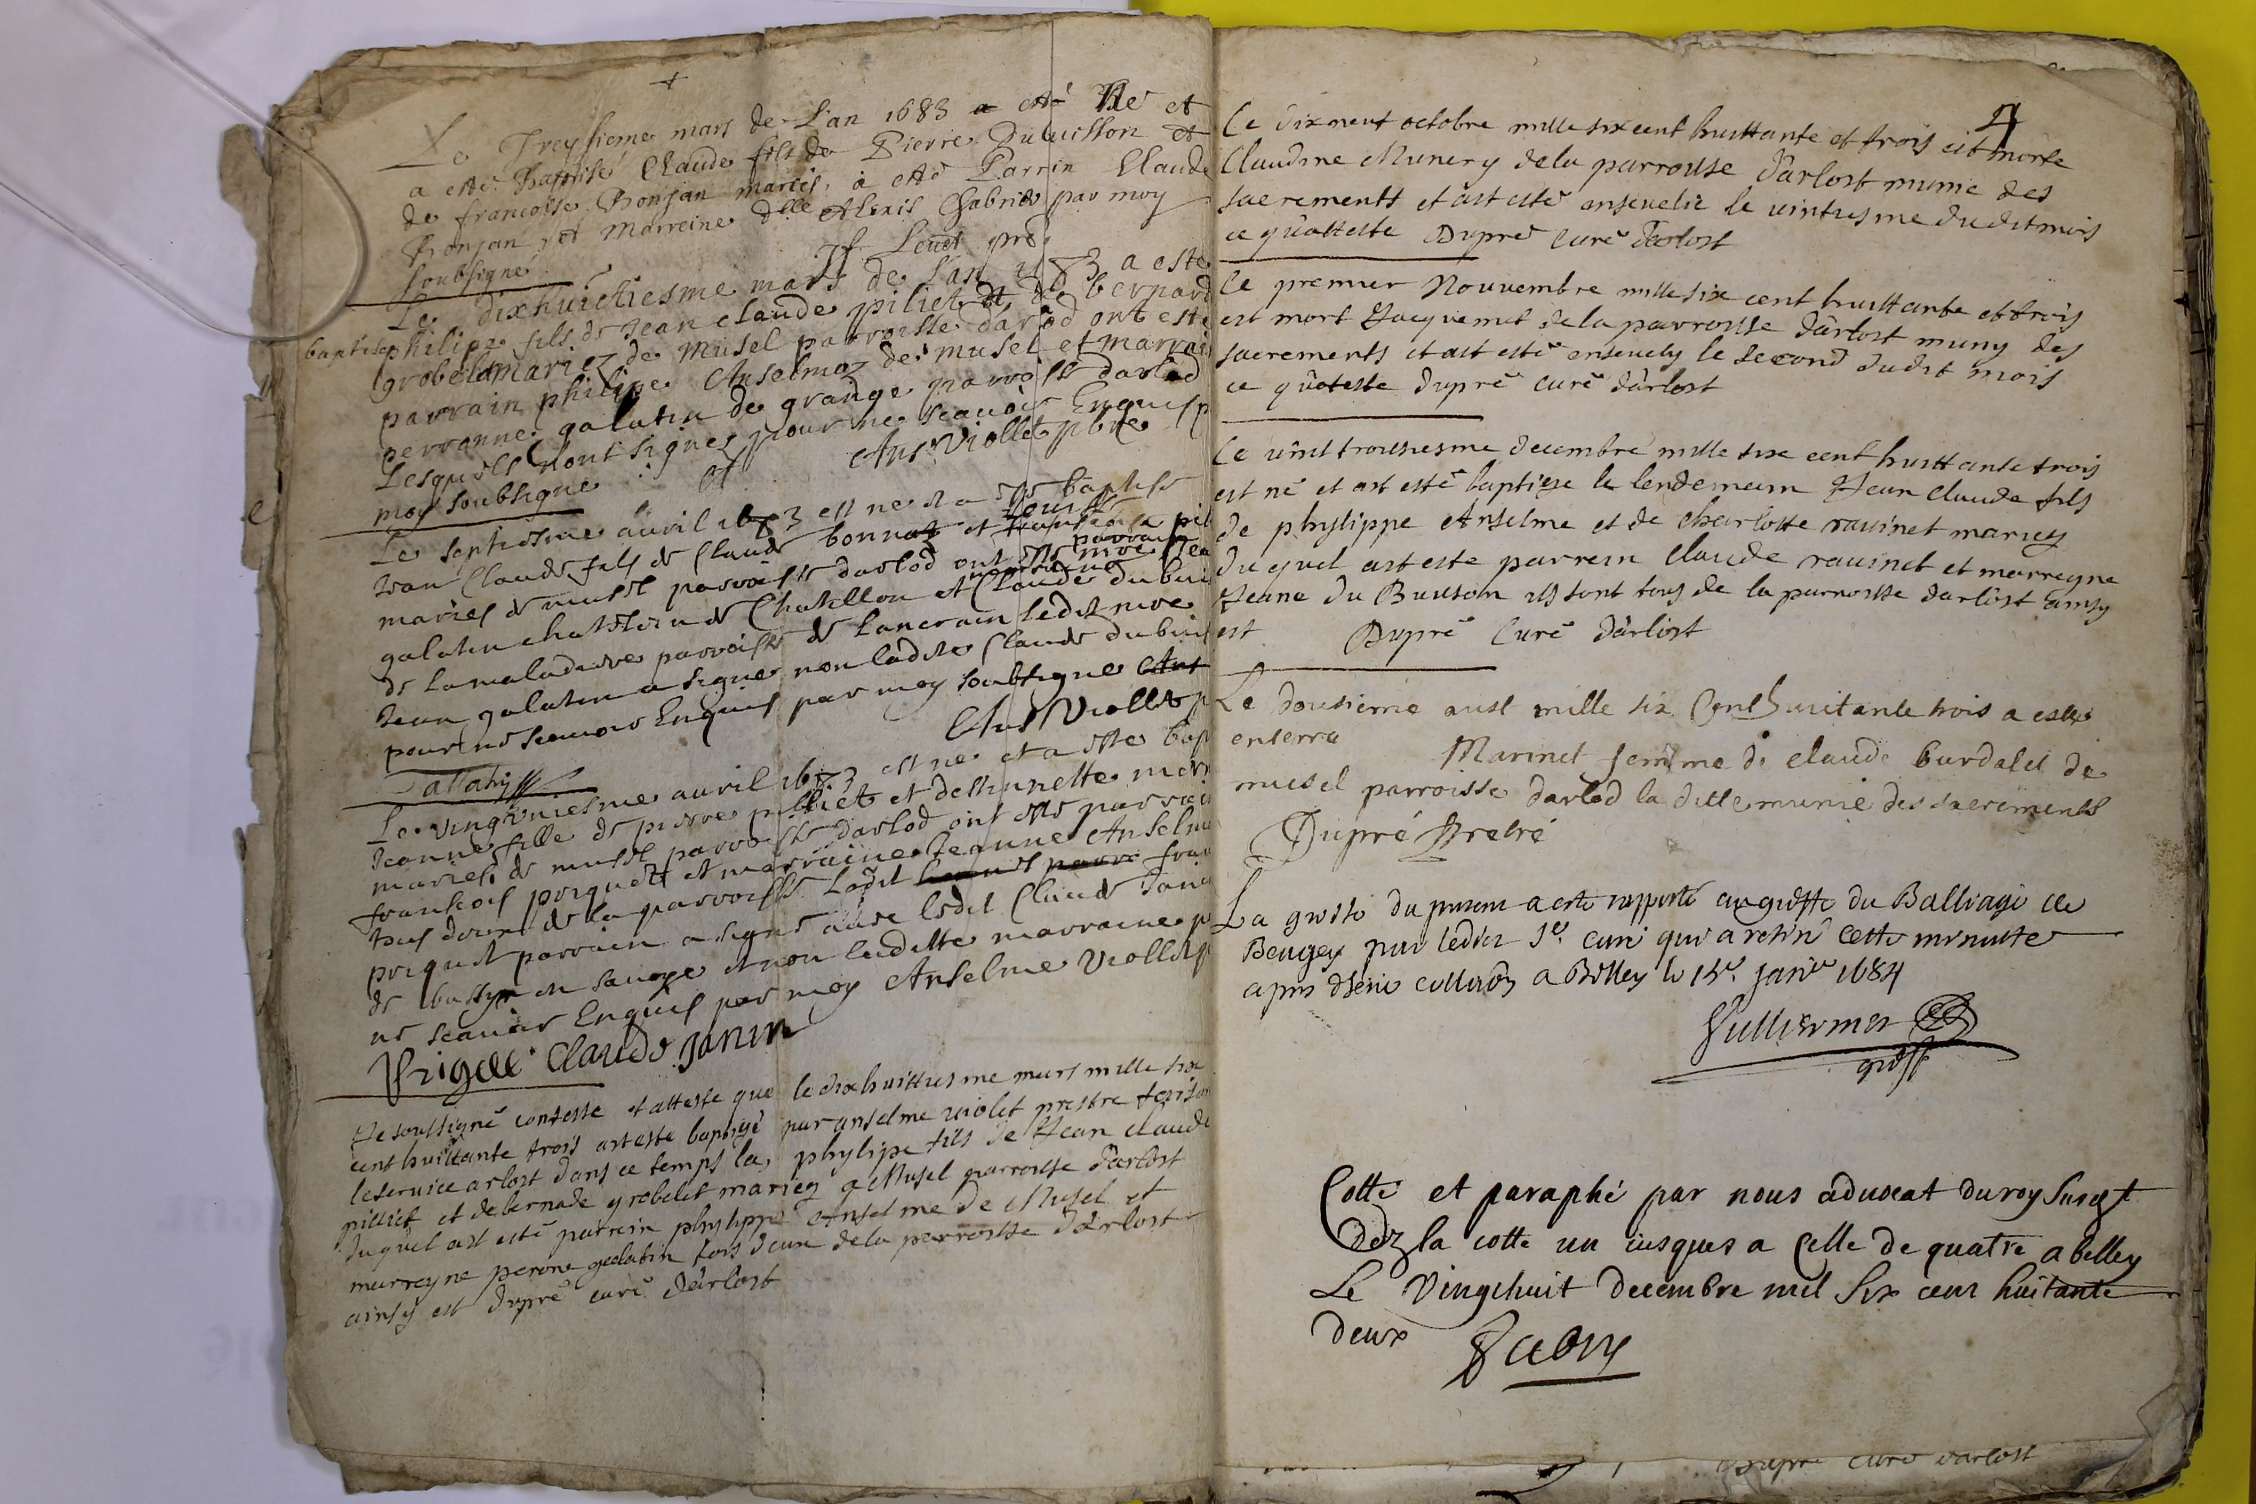 Le Treysieme mars de L'an 1683 a esté Né et
a esté Baptisé Claude fils de Pierre Dubuisson et
de francoise Bonjan mariés, a esté Parrin Claude
Bonjan et Marreine dlle Alexis Chabrier par moy
soubsigné
Le dixhuictiesme mars de L'an 1683 a este
baptise philipe fils de Jean claude piliet et de bernard
grobelet mariez de Musel parroisse darlod ont este
parrain philipe Anselmoz de musel et marrai
perronne galatin de grange parroisse darlod
Lesquels n'ont signez pour ne scavoir Enquis p
moy soubsigné Ans Viollet pbre
Le septiesme auvril 1683 est ne et a este baptise
Jean Claude fils de Claude bonnaz et
mariés de musel parroisse darlod ont este
galatin chatelain de Chatillon et Claude dubui
de La maladiere parroisse de Lancrain ledit
Jean galatin a signe non ladite Claude dubui
pour ne scavoir Enquis par moy soubsigne Ans
Ans Viollet p
Le vingtuiesme auvril 1683 est ne et a este bap
Jeanne fille de pierre pilliet et de
mariés de musel parroisse darlod ont este parrain
francois poiquet et marraine Jeanne Anselme
tous deux de la parroisse
poiquet parrain a signé avec ledit Claude Janin
de en savoye et non ladite marraine p
ne scavoir Enquis par moy Anselme Viollet p
Claude Janin
Je soussigné confesse et atteste que le dixhuittiesme mars mille six
cent huittante trois ast este baptisé par anselme violet prestre
le service arlost dans ce temps la, phylipe fils de Jean claude
pilliet et de bernade grobelet mariez a Musel parroisse darlost
duquel ast esté parrein phylippe Anselme de Musel et
marreyne perone galatin tous deux de la parroisse d'arlost
ainsy est dupré curé d'arlost
4
Le dixneuf octobre mille six cent huittante et trois est morte
Claudine Munery de la parroisse d'arlost munie des
sacrements et ast esté ensevelie le vintiesme dudit mois
ce qu'atteste Dupré curé d'arlost
Le premier Nouvembre mille six cent huittante et trois
est mort Jacquemet de la parroisse d'arlost muny des
sacrements et ast esté ensevely le second dudit mois
ce qu'ateste dupré curé d'arlost
Le vint troisiesme decembre mille six cent huittante trois
est né et ast esté baptize le lendemain Jean Claude fils
de phylippe Anselme et de charlotte ravinet mariez
duquel ast este parrein Claude ravinet et marreyne
Jeane du Buisson ils sont tous de la parroisse darlost ainsy
est Dupré Curé d'arlost
Le dousieme aust mille six Cent huitante trois a esté
enserre Marinet femme de claude burdalet de
musel parroisse darlod la ditte munie des sacrements
Dupré Prebré
La grosse du present a esté rapporté au greffe du Balliage de
Beugey par ledit Sr curé qui a retiré cette minutte
apres deue collation a Belley le 15e Janer 1684
Gulliermet
greff
Cotté et paraphé par nous advocat du roy
Dez la cotte un jusques a Celle de quatre a belley
Le Vingthuit decembre mil six cent huitante
deux Fabry
Dupré curé darlost